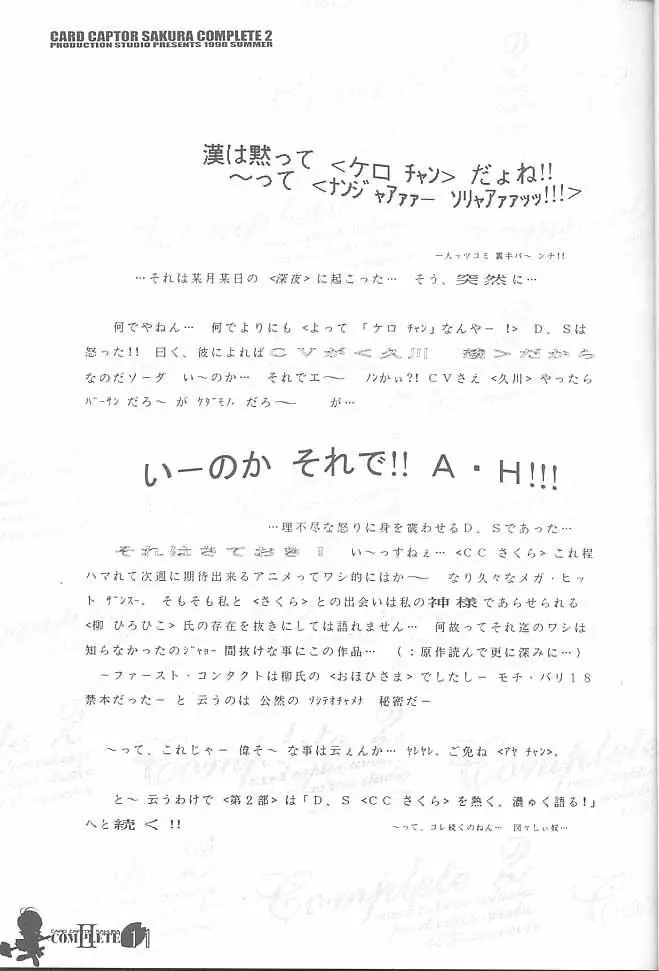 CARD CAPTOR SAKURA COMPLETE 2
PRODUCTION STUDIO PRESENTS 1998 SUMMER
漢は黙って <ケロ ﾁｬﾝ> だょね!!
〜って <ﾅﾝｼﾞｬｱｧｧー ｿﾘｬｱｧｧｯｯ!!!>
一人ッツコミ 裏手パ〜 ンチ!!
…それは某月某日の <深夜> に起こった… そう、突然に…
何でやねん… 何でよりにも <よって 「ケロ ﾁｬﾝ」なんやー !> D、Sは
怒った!! 曰く、彼によれば CVが<久川 綾>だから
なのだソーダ い〜のか… それでエ〜 ﾉﾝかぃ?! CVさえ <久川> やったら
ﾊﾞｰｻﾝ だろ〜 が ｹﾀﾞﾓﾉﾑ だろ〜 が…
いーのか それで!! A・H!!!
…理不尽な怒りに身を震わせるD、Sであった…
それはさておき! い〜っすねぇ… <CC さくら> これ程
ハマれて次週に期待出来るアニメってワシ的にはか〜 なり久々なメガ・ヒッ
ト ｻﾞﾝｽｰ、そもそも私と <さくら> との出会いは私の神様であらせられる
<柳 ひろひこ> 氏の存在を抜きにしては語れません… 何故ってそれ迄のワシは
知らなかったのｼﾞｬｮｰ 間抜けな事にこの作品… (:原作読んで更に深みに…)
ーファースト・コンタクトは柳氏の <おほひさま> でしたしー モチ・バリ18
禁本だったー と 云うのは 公然の ｿｼﾃｵﾁｬﾒﾅ 秘密だー
〜って、これじゃー 偉そ〜 な事は云ぇんか… ﾔﾚﾔﾚ、ご免ね <ｱﾔ ﾁｬﾝ>、
と〜 云うわけで <第2部> は「D、S <CC さくら> を熱く、濃ゅく語る!」
へと続く!!
〜って、コレ続くのねん… 図々しぃ奴…
CARD CAPTOR SAKURA
COMPLETE II 11